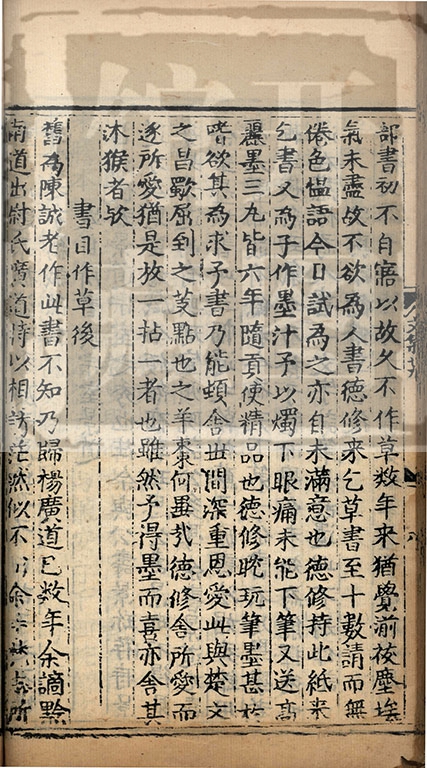 部書初不自寤以故久不作草数年來猶覺湔祓塵埃
氣未盡故不欲為人書德修來乞草書至十數請而無
倦色愠語今日試為之亦自未滿意也德修持此紙來
乞書又為予作墨汁予以燭下眼痛未能下筆又送高
麗墨三丸皆六年隨貢使精品也德修晩玩筆墨甚於
嗜欲其為求予書乃能頓舍世間深重恩愛此與楚文
之昌歜屈到之芰點也之羊棗何異㢤德修舍所愛而
逐所愛猶是放一拈一者也雖然予得墨而喜亦舍其
沐猴者欤
書自作草後
舊為陳誠老作此書不知乃歸楊廣道已数年余謫黔
南道出尉氏廣道持以相請茫然似不余所